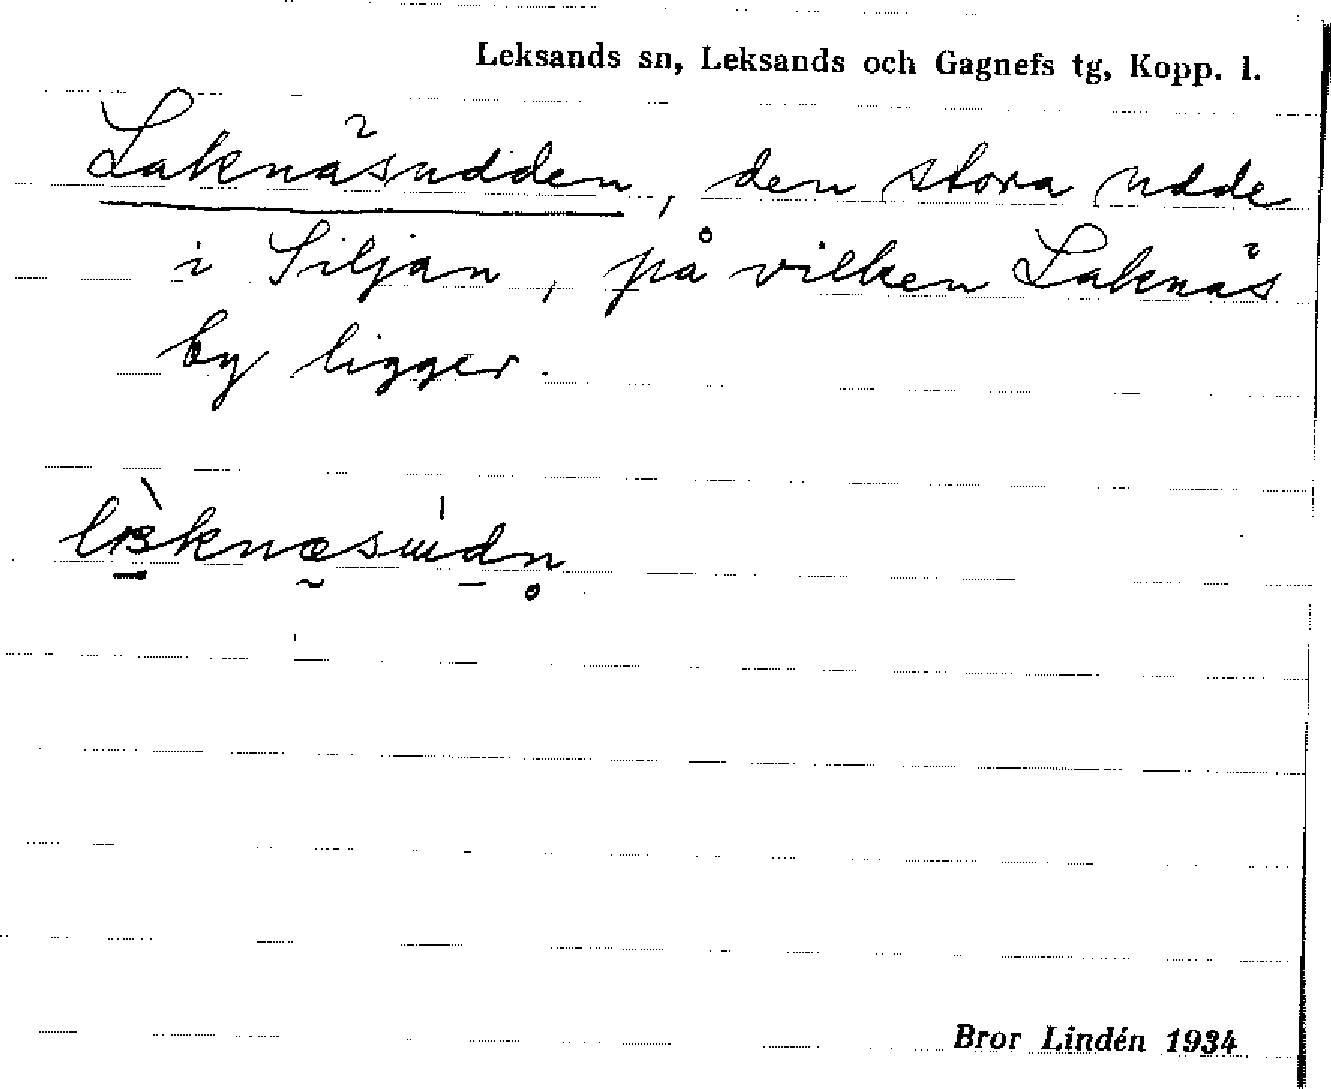 Leksands sn, Leksands och Gagnefs tg, Kopp. l.
Laknäsudden, den stora udde
i Siljan, på vilken Laknäs
by ligger.
Bror Lindén 1934